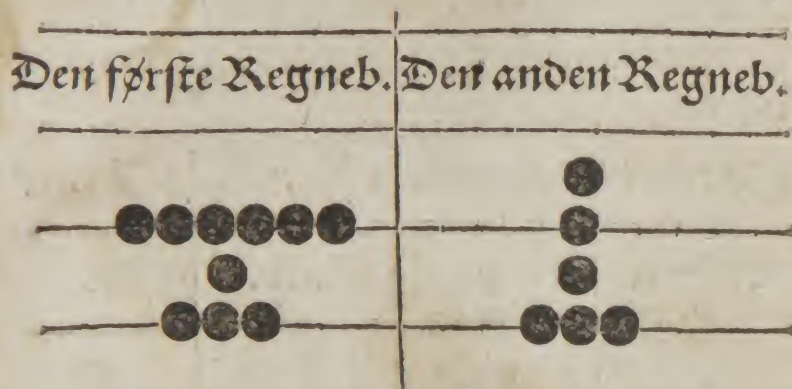 Den første Regneb. Den anden Regneb.